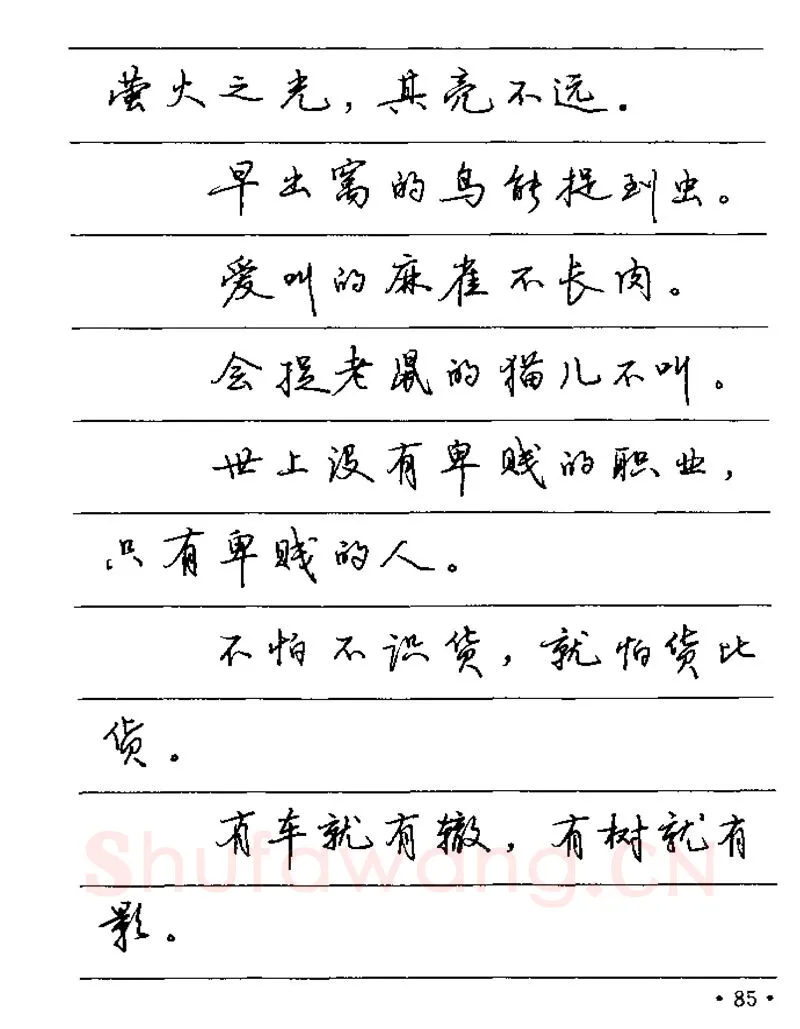 萤火之光，其亮不远．
早出窝的鸟能捉到虫。
爱叫的麻雀不长肉。
会捉老鼠的猫儿不叫。
世上没有卑贱的职业，
只有卑贱的人。
不怕不识货，就怕货比
货。
有车就有辙，有树就有
影。
Shufawang.CN
·85·